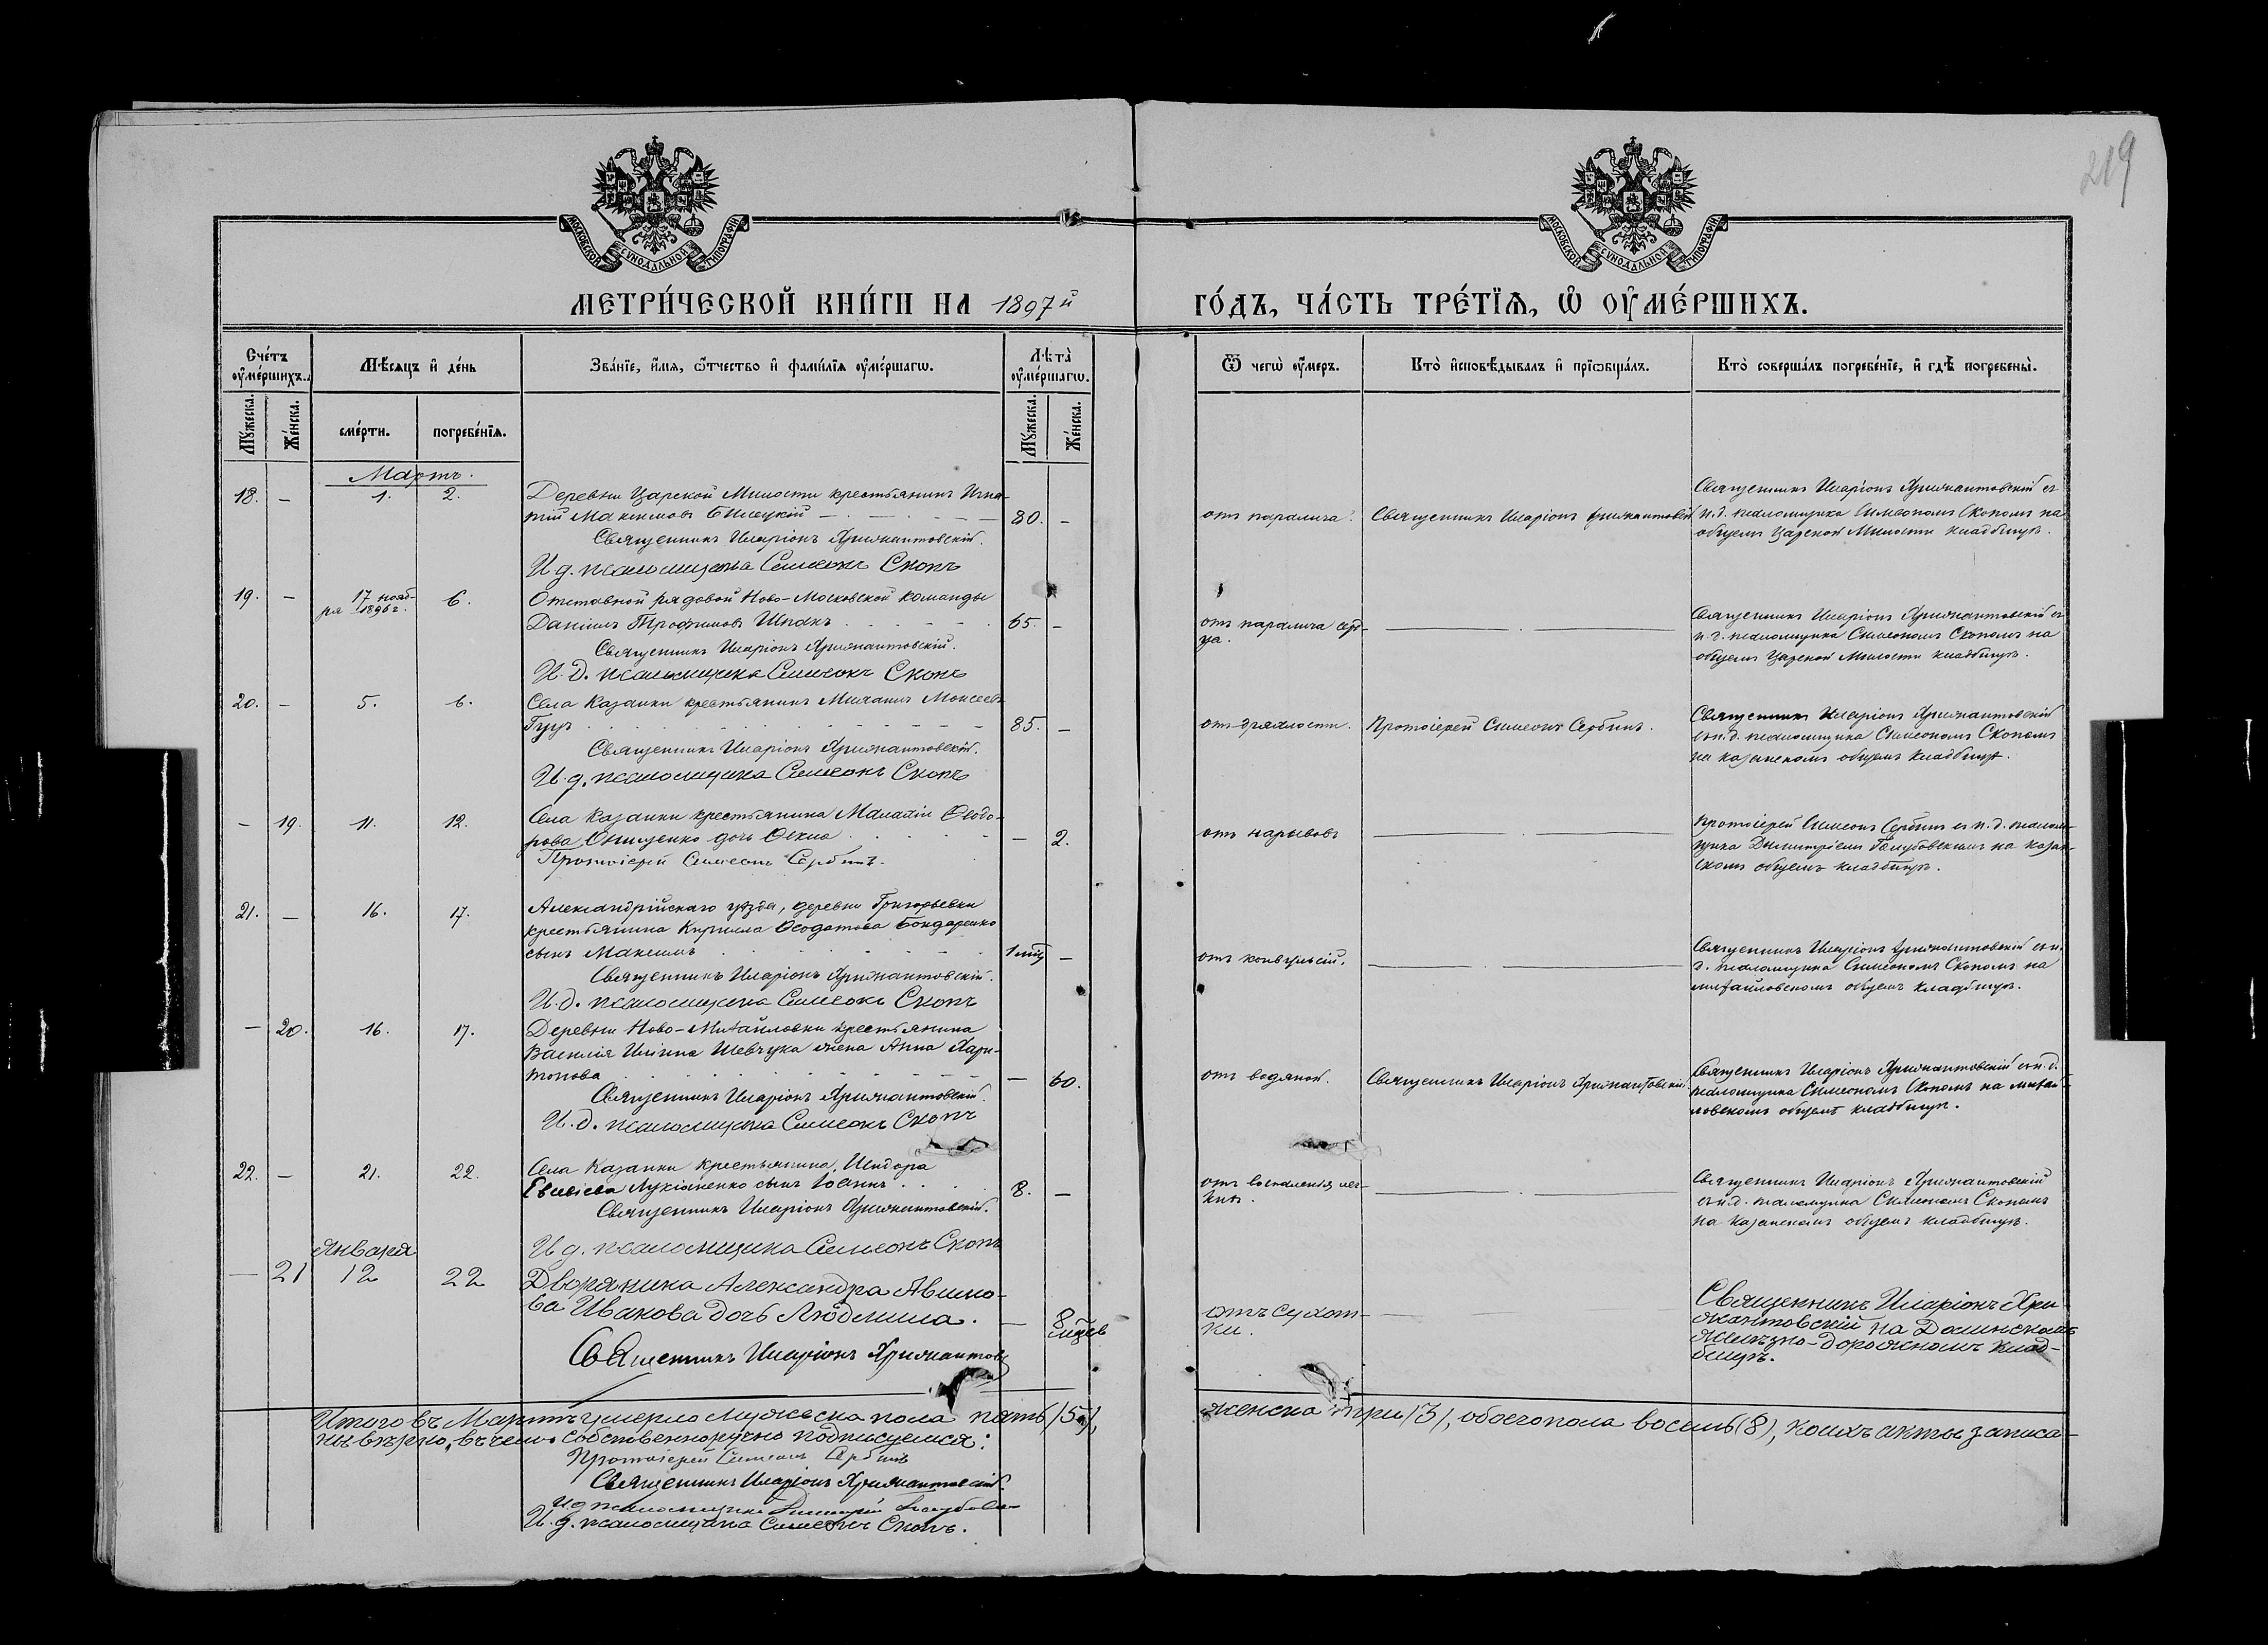 219
МОСКОВСКОЙ СѴНОДАЛЬНОЙ ТИПОГРАФІИ
МОСКОВСКОЙ СѴНОДАЛЬНОЙ ТИПОГРАФІИ
МЕТРИ́ЧЕСКОЙ КНИ́ГИ НА 1897й
ГО́ДЪ, ЧА́СТЬ ТРЕ́ТІѦ, Ѡ ОУМЕ́РШИХЪ.
Сче́тъ оуме́ршихъ.
Мѣ́сяцъ и де́нь
Зва́нїе, и́мѧ, ѻ́тчество и фами́лїѧ оуме́ршагѡ.
Лѣта̀ оуме́ршагѡ.
Ѿ чегѡ̀ оу́меръ.
Кто̀ и҆сповѣ́дывалъ и҆ прїѡбща́лъ.
Кто̀ соверша́лъ погребе́нїе, и҆ гдѣ̀ погребены̀.
Му́жеска.
Же́нска.
сме́рти.
погребе́нїѧ.
Му́жеска.
Же́нска.
Мартъ.
18. — 1. 2. Деревни Царской Милости крестьянинъ Игна-
тій Максимовъ Билецкій — 80. —
Священникъ Иларіонъ Хрижантовскій.
И д. псаломщика Симеонъ Скопъ
отъ паралича. Священникъ Иларіонъ Хрижантовскій
Священникъ Иларіонъ Хрижантовскій съ
и. д. псаломщика Симеономъ Скопомъ на
общемъ Царской Милости кладбищѣ.
19. — 17 нояб-
ря 1896 г. 6. Отставной рядовой Ново-Московской команды
Даніилъ Трофимовъ Шпакъ 65. —
Священникъ Иларіонъ Хрижантовскій.
И. д. псаломщика Симеонъ Скопъ
отъ паралича серд-
ца.
Священникъ Иларіонъ Хрижантовскій съ
и. д. псаломщика Симеономъ Скопомъ на
общемъ Царской Милости кладбищѣ.
20. — 5. 6. Села Казанки крестьянинъ Михаилъ Моисеевъ
Гуцъ 85. —
Священникъ Иларіонъ Хрижантовскій.
И. д. псаломщика Симеонъ Скопъ
отъ дряхлости. Протоіерей Симеонъ Сербинъ.
Священникъ Иларіонъ Хрижантовскій
съ и. д. псаломщика Симеономъ Скопомъ
на казанскомъ общемъ кладбищѣ.
— 19. 11. 12. Села Казанки крестьянина Малахіи Ѳеодо-
рова Онищенко дочь Ѳекла — 2.
Протоіерей Симеонъ Сербинъ.
отъ нарывовъ
Протоіерей Симеонъ Сербинъ съ и. д. псалом-
щика Димитріемъ Голубовскимъ на казан-
скомъ общемъ кладбищѣ.
21. — 16. 17. Александрійскаго уѣзда, деревни Григорьевки
крестьянина Кирилла Ѳеодотова Бондаренко
сынъ Максимъ —
Священникъ Иларіонъ Хрижантовскій.
И. д. псаломщика Симеонъ Скопъ
отъ конвульсій.
Священникъ Иларіонъ Хрижантовскій съ и.
д. псаломщика Симеономъ Скопомъ на
михайловскомъ общемъ кладбищѣ.
— 20. 16. 17. Деревни Ново-Михайловки крестьянина
Василія Ильина Шевчука жена Анна Хари-
тонова — 60.
Священникъ Иларіонъ Хрижантовскій.
И. д. псаломщика Симеонъ Скопъ
отъ водяной. Священникъ Иларіонъ Хрижантовскій
Священникъ Иларіонъ Хрижантовскій съ и. д.
псаломщика Симеономъ Скопомъ на михай-
ловскомъ общемъ кладбищѣ.
22. — 21. 22. Села Казанки крестьянина Исидора
Евсевіева Лукіаненко сынъ Іоаннъ 8. —
Священникъ Иларіонъ Хрижантовскій.
И д. псаломщика Симеонъ Скопъ
отъ воспаленія лег-
кихъ.
Священникъ Иларіонъ Хрижантовскій
съ и. д. псаломщика Симеономъ Скопомъ
на казанскомъ общемъ кладбищѣ.
Января
— 21 12 22 Дворянина Александра
Иванова дочь Людмила. — 8
Священникъ Иларіонъ Хрижантов
отъ сухот-
ки.
Священникъ Иларіонъ Хри
жантовскій на Долинскомъ
желѣзно-дорожномъ клад-
бищѣ.
Итого въ Мартѣ умерло мужеска пола пять (5),
женска три (3), обоего пола восемь (8), коихъ акты записа-
ны вѣрно, въ чемъ собственноручно подписуемся:
Протоіерей Симеонъ Сербинъ
Священникъ Иларіонъ Хрижантовскій.
И д псаломщика Димитрій
И. д. псаломщика Симеонъ Скопъ.